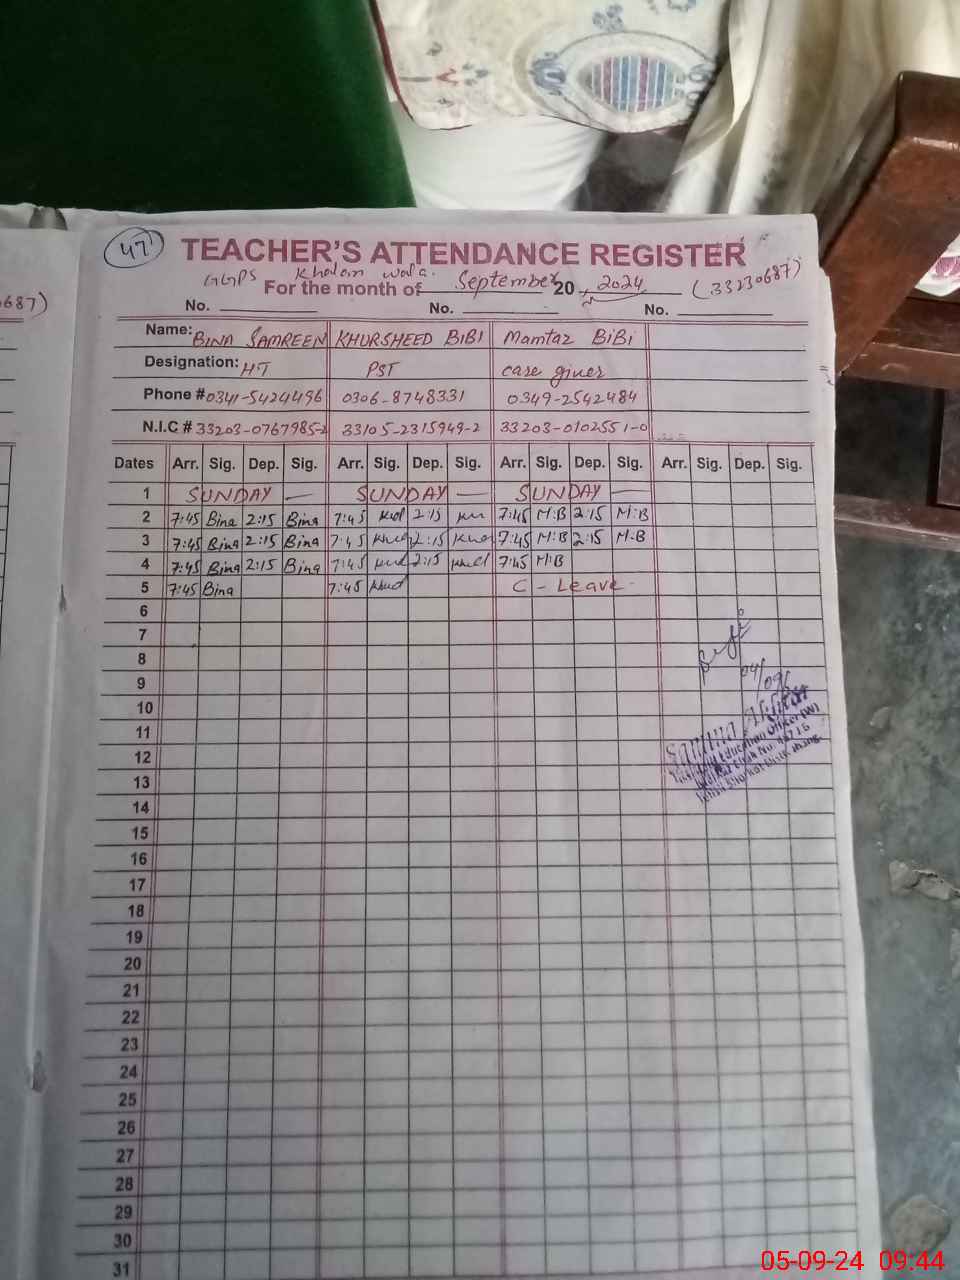 47
TEACHER'S ATTENDANCE REGISTER
GGPS Khalan wala.
For the month of September 20 2024 (33230687)
No. No. No.
687)
Name: BINA SAMREEN KHURSHEED BIBI Mamtaz BiBi
Designation: HT PST care giver
Phone # 0341-5424496 0306-8748331 0349-2542484
N.I.C # 33203-0767985-2 33105-2315949-2 33203-0102551-0
Dates Arr. Sig. Dep. Sig. Arr. Sig. Dep. Sig. Arr. Sig. Dep. Sig. Arr. Sig. Dep. Sig.
1 SUNDAY — SUNDAY — SUNDAY —
2 7:45 Bina 2:15 Bina 7:45 2:15 7:45 M:B 2:15 M:B
3 7:45 Bina 2:15 Bina 7:45 2:15 7:45 M:B 2:15 M-B
4 7:45 Bina 2:15 Bina 7:45 2:15 7:45 M:B
5 7:45 Bina 7:45 C - Leave -
6
7
8
9
10
11
12
13
14
15
16
17
18
19
20
21
22
23
24
25
26
27
28
29
30
31
04/09/
Education Officer (W)
05-09-24 09:44